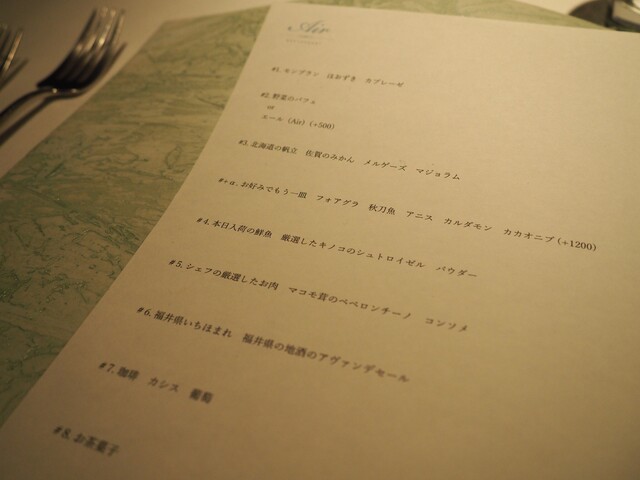 Air
#1. モンブラン　ほおずき　カプレーゼ
#2. 野菜のパフェ
or
エール (Air) (+500)
#3. 北海道の帆立　佐賀のみかん　メルゲーズ　マジョラム
#+α. お好みでもう一皿　フォアグラ　秋刀魚　アニス　カルダモン　カカオニブ (+1200)
#4. 本日入荷の鮮魚　厳選したキノコのシュトロイゼル　パウダー
#5. シェフの厳選したお肉　マコモ茸のペペロンチーノ　コンソメ
#6. 福井県いちほまれ　福井県の地酒のアヴァンデセール
#7. 珈琲　カシス　葡萄
#8. お茶菓子